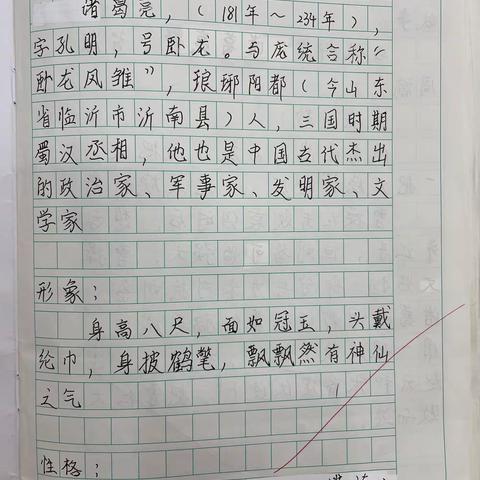 诸葛亮，（181年～234年），
字孔明，号卧龙。与庞统合称“
卧龙凤雏”，琅琊阳都（今山东
省临沂市沂南县）人，三国时期
蜀汉丞相，他也是中国古代杰出
的政治家、军事家、发明家、文
学家
形象：
身高八尺，面如冠玉，头戴
纶巾，身披鹤氅，飘飘然有神仙
之气
性格：